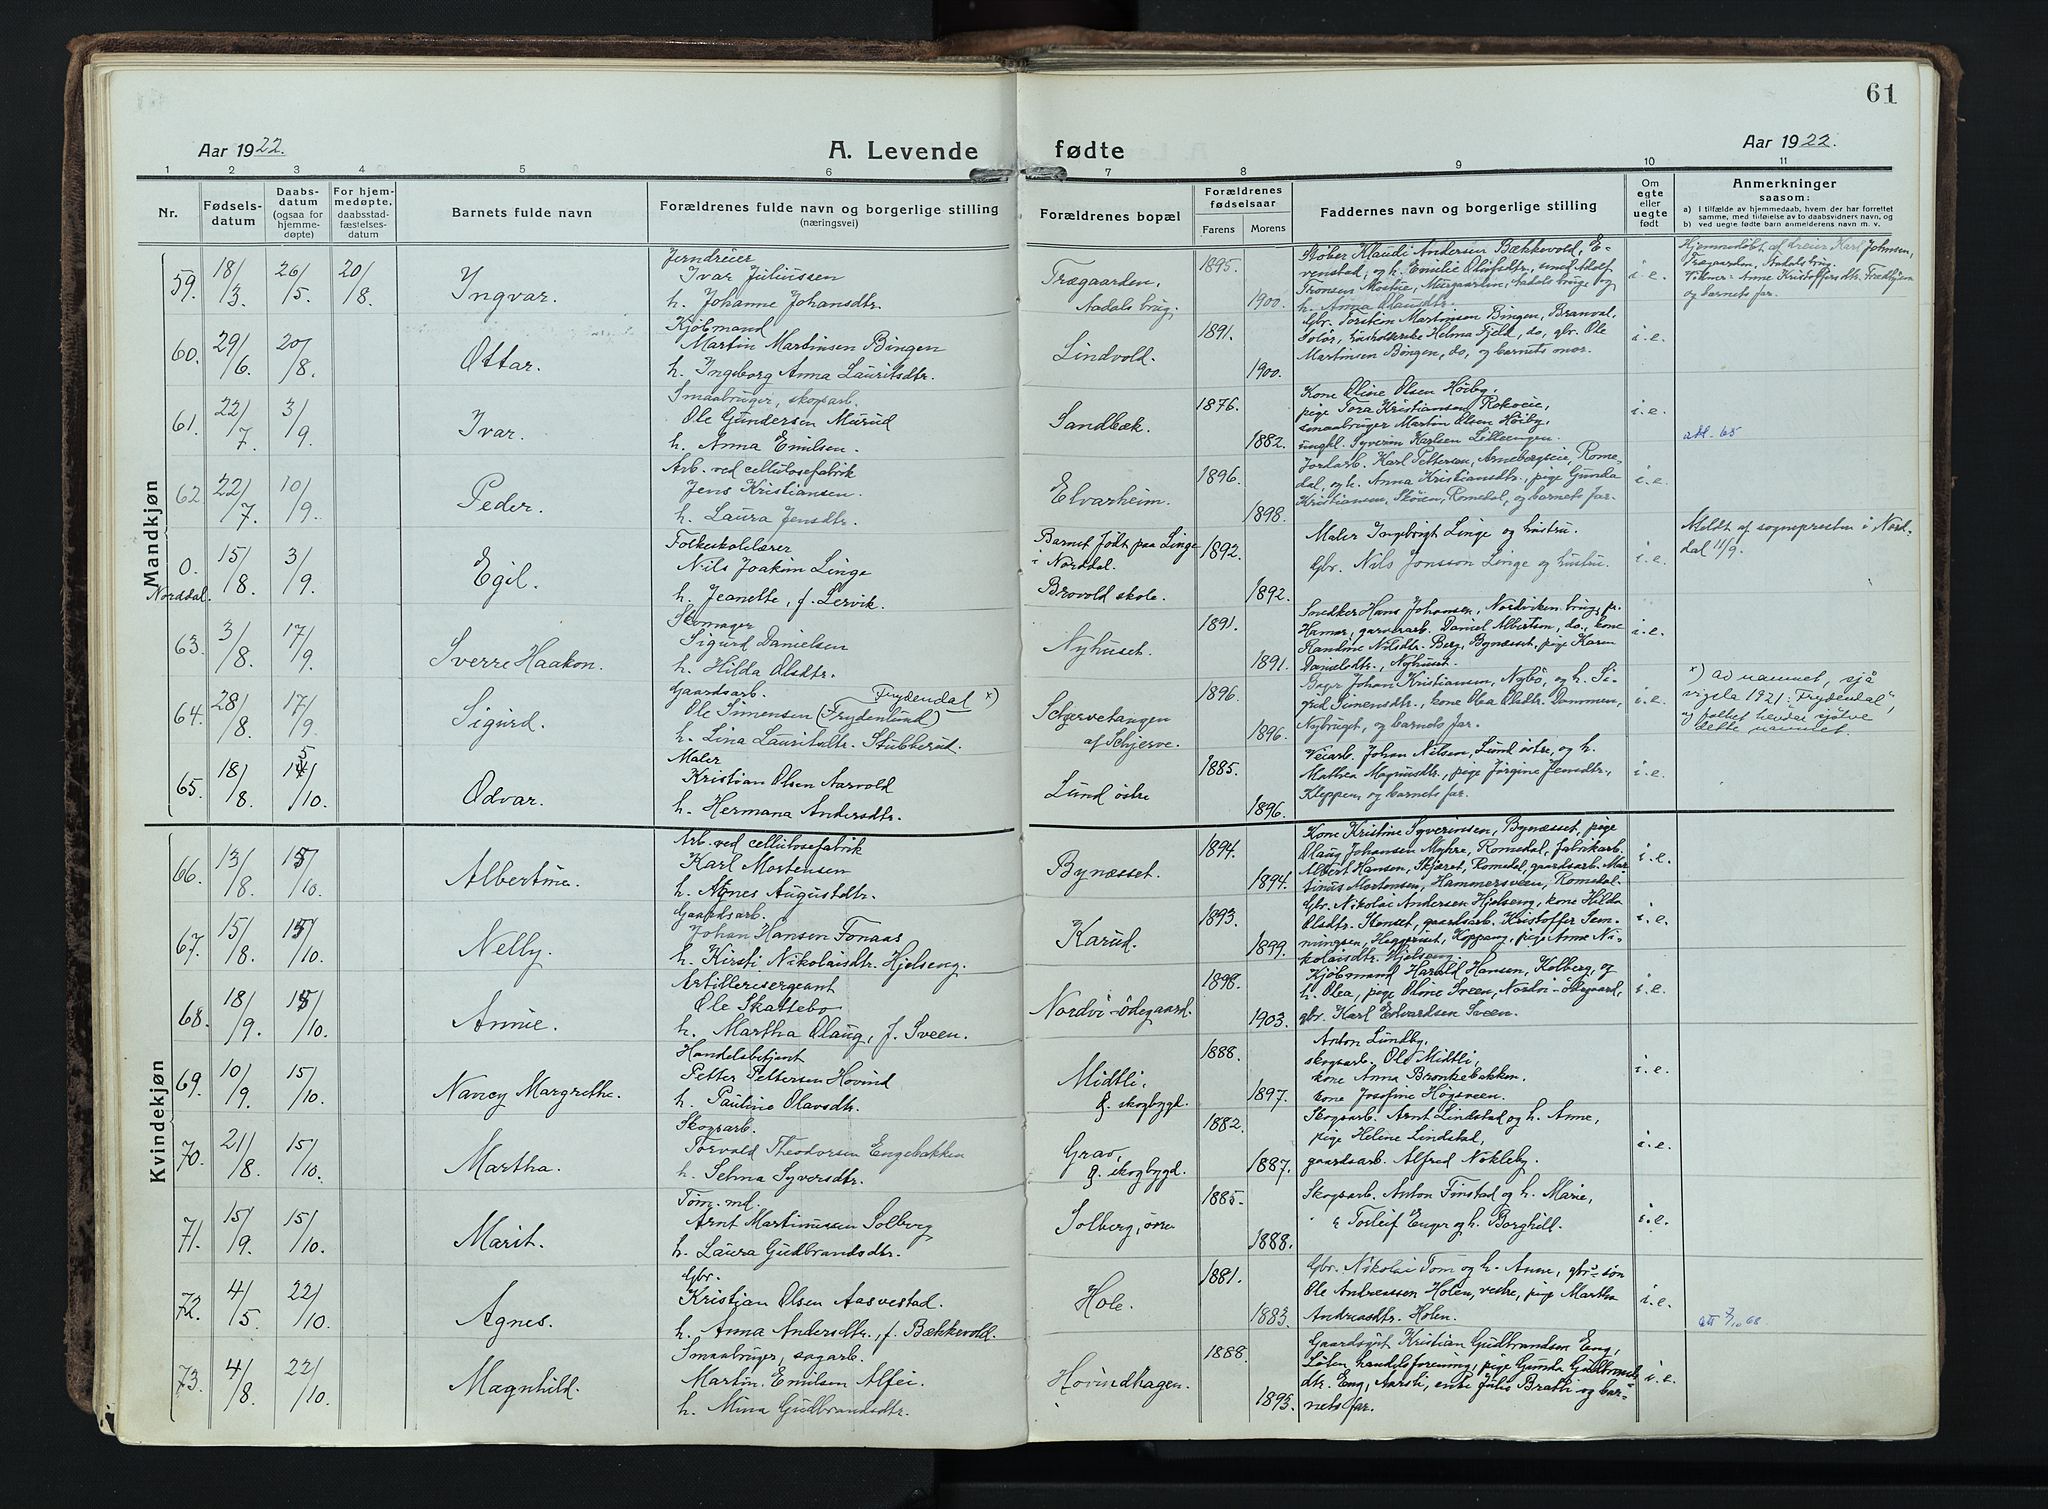 61
Aar 1922.
A. Levende fødte
Aar 1922.
1 2 3 4 5 6 7 8 9 10 11
Nr.
Fødsels-
datum
Daabs-
datum
(ogsaa for
hjemme-
døpte)
For hjem-
medøpte,
daabsstad-
fæstelses-
datum
Barnets fulde navn
Forældrenes fulde navn og borgerlige stilling
(næringsvei)
Forældrenes bopæl
Forældrenes
fødselsaar
Farens Morens
Faddernes navn og borgerlige stilling
Om
egte
eller
uegte
født
Anmerkninger
saasom:
a) i tilfælde av hjemmedaab, hvem der har forrettet
samme, med tilføielse av to daabsvidners navn, og
b) ved uegte fødte barn anmelderens navn m. v.
Mandkjøn
59. 18/3 26/5 20/8
Ingvar.
Jerndreier
Ivar Juliussen
h. Johanne Johansdtr.
Trægaarden,
Aadals brug.
1895.
1900.
Støber Klaudi Andersen Bækkevold, E-
venstad, og h. Emilie Olufsdtr., smed Adolf
Tronsen Mostue, Murgaarden, Aadals brug, og
h. Anna Olausdtr.
i. e.
Hjemmedøbt af dreier Karl Johnsen,
Trægaarden, Aadals brug.
Vidner: Anne Kristoffersdtr.
og barnets far.
60. 29/6 20/8
Ottar.
Kjøbmand
Martin Martinsen Bingen
h. Ingeborg Anna Lauritsdtr.
Lindvold.
1891.
1900.
Gbr. Torstein Martinsen Bingen, Branval
Solør, husholderske Helma Fjeld, do, gbr. Ole
Martinsen Bingen, do, og barnets mor.
i. e.
61. 22/7 3/9
Ivar.
Smaabruger, skogsarb.
Ole Gundersen Murud
h. Anna Emilsen.
Sandbæk.
1876.
1882.
Kone Oline Olsen Høiby,
pige Tora Kristiansen Rokveie,
smaabruger Martin Olsen Høiby,
ungkl. Syverin Karlsen Lillesengen.
i. e.
att. 65
62. 22/7 10/9
Peder.
Arb. ved cellulosefabrik
Jens Kristiansen.
h. Laura Jensdtr.
Elvarheim.
1896.
1898.
Jordarb. Karl Pettersen, Arnebergseie, Rome-
dal, og h. Anna Kristiansdtr., pige Gunda
Kristiansen, Skøien, Romedal, og barnets far.
i. e.
0. Norddal. 15/8 3/9
Egil.
Folkeskolelærer
Nils Joakim Linge
h. Jeanette, f. Lervik.
Barnet født paa Linge
i Norddal.
Brovold skole.
1892.
1892.
Maler Ingebrigt Linge og hustru.
Gbr. Nils Jonsson Linge og hustru.
i. e.
Meldt af sognepresten i Nord-
dal 11/9.
63. 3/8 17/9
Sverre Haakon.
Skomager
Sigurd Danielsen
h. Hilda Olsdtr.
Nyhuset.
1891.
1891.
Snedker Hans Johansen, Nordviken brug, pr.
Hamar, garverarb. Daniel Albertsen, do., kone
Randine Nilsdtr. Berg, Bynæsset, pige Karen
Danielsdtr., Nyhuset.
i. e.
64. 28/8 17/9
Sigurd.
Gaardsarb.
Frydendal x)
Ole Simensen (Frydenlund)
h. Lina Lauritsdtr. Stubberud.
Schjervetangen
af Schjerve.
1896.
1896.
Bager Johan Kristiansen, Nybø, og h. Si-
grid Simensdtr., kone Olea Olsdtr. Dammen,
Nybruget, og barnets far.
i. e.
x) av namnet, sjå
vigsla 1921: "Frydendal",
og folket hevdar sjølve
dette namnet.
65. 18/8 15/10
Odvar.
Maler
Kristian Olsen Aarvold
h. Hermana Andersdtr.
Lund østre
1885.
1896.
Veiarb. Johan Nilsen, Lund østre, og h.
Mathea Magnusdtr., pige Jørgine Jensdtr.,
Kleppen, og barnets far.
i. e.
Kvindekjøn
66. 13/8 15/10
Albertine.
Arb. ved cellulosefabrik
Karl Mortensen
h. Agnes Augustdtr.
Bynæsset.
1894.
1894.
Kone Kristine Syverinsen, Bynæsset, pige
Olaug Johansen Myhre, Romedal, fabrikarb.
Albert Hansen, Skjæret, Romedal, gaardsarb. Mar-
tinus Mortensen, Hammersveen, Romedal.
i. e.
67. 15/8 15/10
Nelly.
Gaardsarb.
Johan Hansen Fonaas
h. Kirsti Nikolaisdtr. Hjelseng.
Karud.
1893.
1899.
Gbr. Nikolai Andersen Hjelseng, kone Hilda
Olsdtr. Stenset, gaardsarb. Kristoffer Sem-
mingsen, Heggeriset, Koppang, pige Anne Ni-
kolaisdtr. Hjelseng.
i. e.
68. 18/9 15/10
Annie.
Artillerisergeant
Ole Skattebo
h. Martha Olaug, f. Sveen.
Nordvi-ødegaard.
1898.
1903.
Kjøbmand Harald Hansen, Kolberg, og
h. Olea, pige Oline Sveen, Nordvi-ødegaard,
gbr. Karl Edvardsen Sveen.
i. e.
69. 10/9 15/10
Nancy Margrethe.
Handelsbetjent
Petter Pettersen Hovind
h. Pauline Olavsdtr.
Midtli,
ø. skogbygd.
1888.
1897.
Anton Lundby,
skogsarb. Ole Midtli,
kone Anna Bronkebakken.
kone Josefine Høgsveen.
i. e.
70. 21/8 15/10
Martha.
Skogsarb.
Torvald Theodorsen Engebakken
h. Selma Syversdtr.
Grav,
ø. skogbygd.
1882.
1887.
Skogsarb. Arnt Lindstad og h. Anne,
pige Helene Lindstad,
gaardsarb. Alfred Nökleby.
i. e.
71. 15/9 15/10
Marit.
Tøm. md.
Arnt Martinussen Solberg
h. Laura Gudbrandsdtr.
Solberg, øvre
1885.
1888.
Skogsarb. Anton Finstad og h. Marie,
" Torleif Enger og h. Borghild.
i. e.
72. 4/5 22/10
Agnes.
Gbr.
Kristian Olsen Aasvestad.
h. Anna Andersdtr., f. Bækkevold.
Hole.
1881.
1883.
Gbr. Nikolai Tom og h. Anne, gbr.s søn
Ole Andreassen Holen, vestre, pige Martha
Andreasdtr. Holen.
i. e.
att 3/10 68
73. 4/8 22/10
Magnhild.
Smaabruger, sagarb.
Martin Emilsen Alfei
h. Mina Gudbrandsdtr.
Hovindhagen.
1888.
1893.
Gaardsgut Kristian Gudbrandsen Eng,
Løten handelsforening, pige Gunda Gudbrands-
dtr. Eng, Aarsti, enke Julie Bratli og bar-
nets far.
i. e.